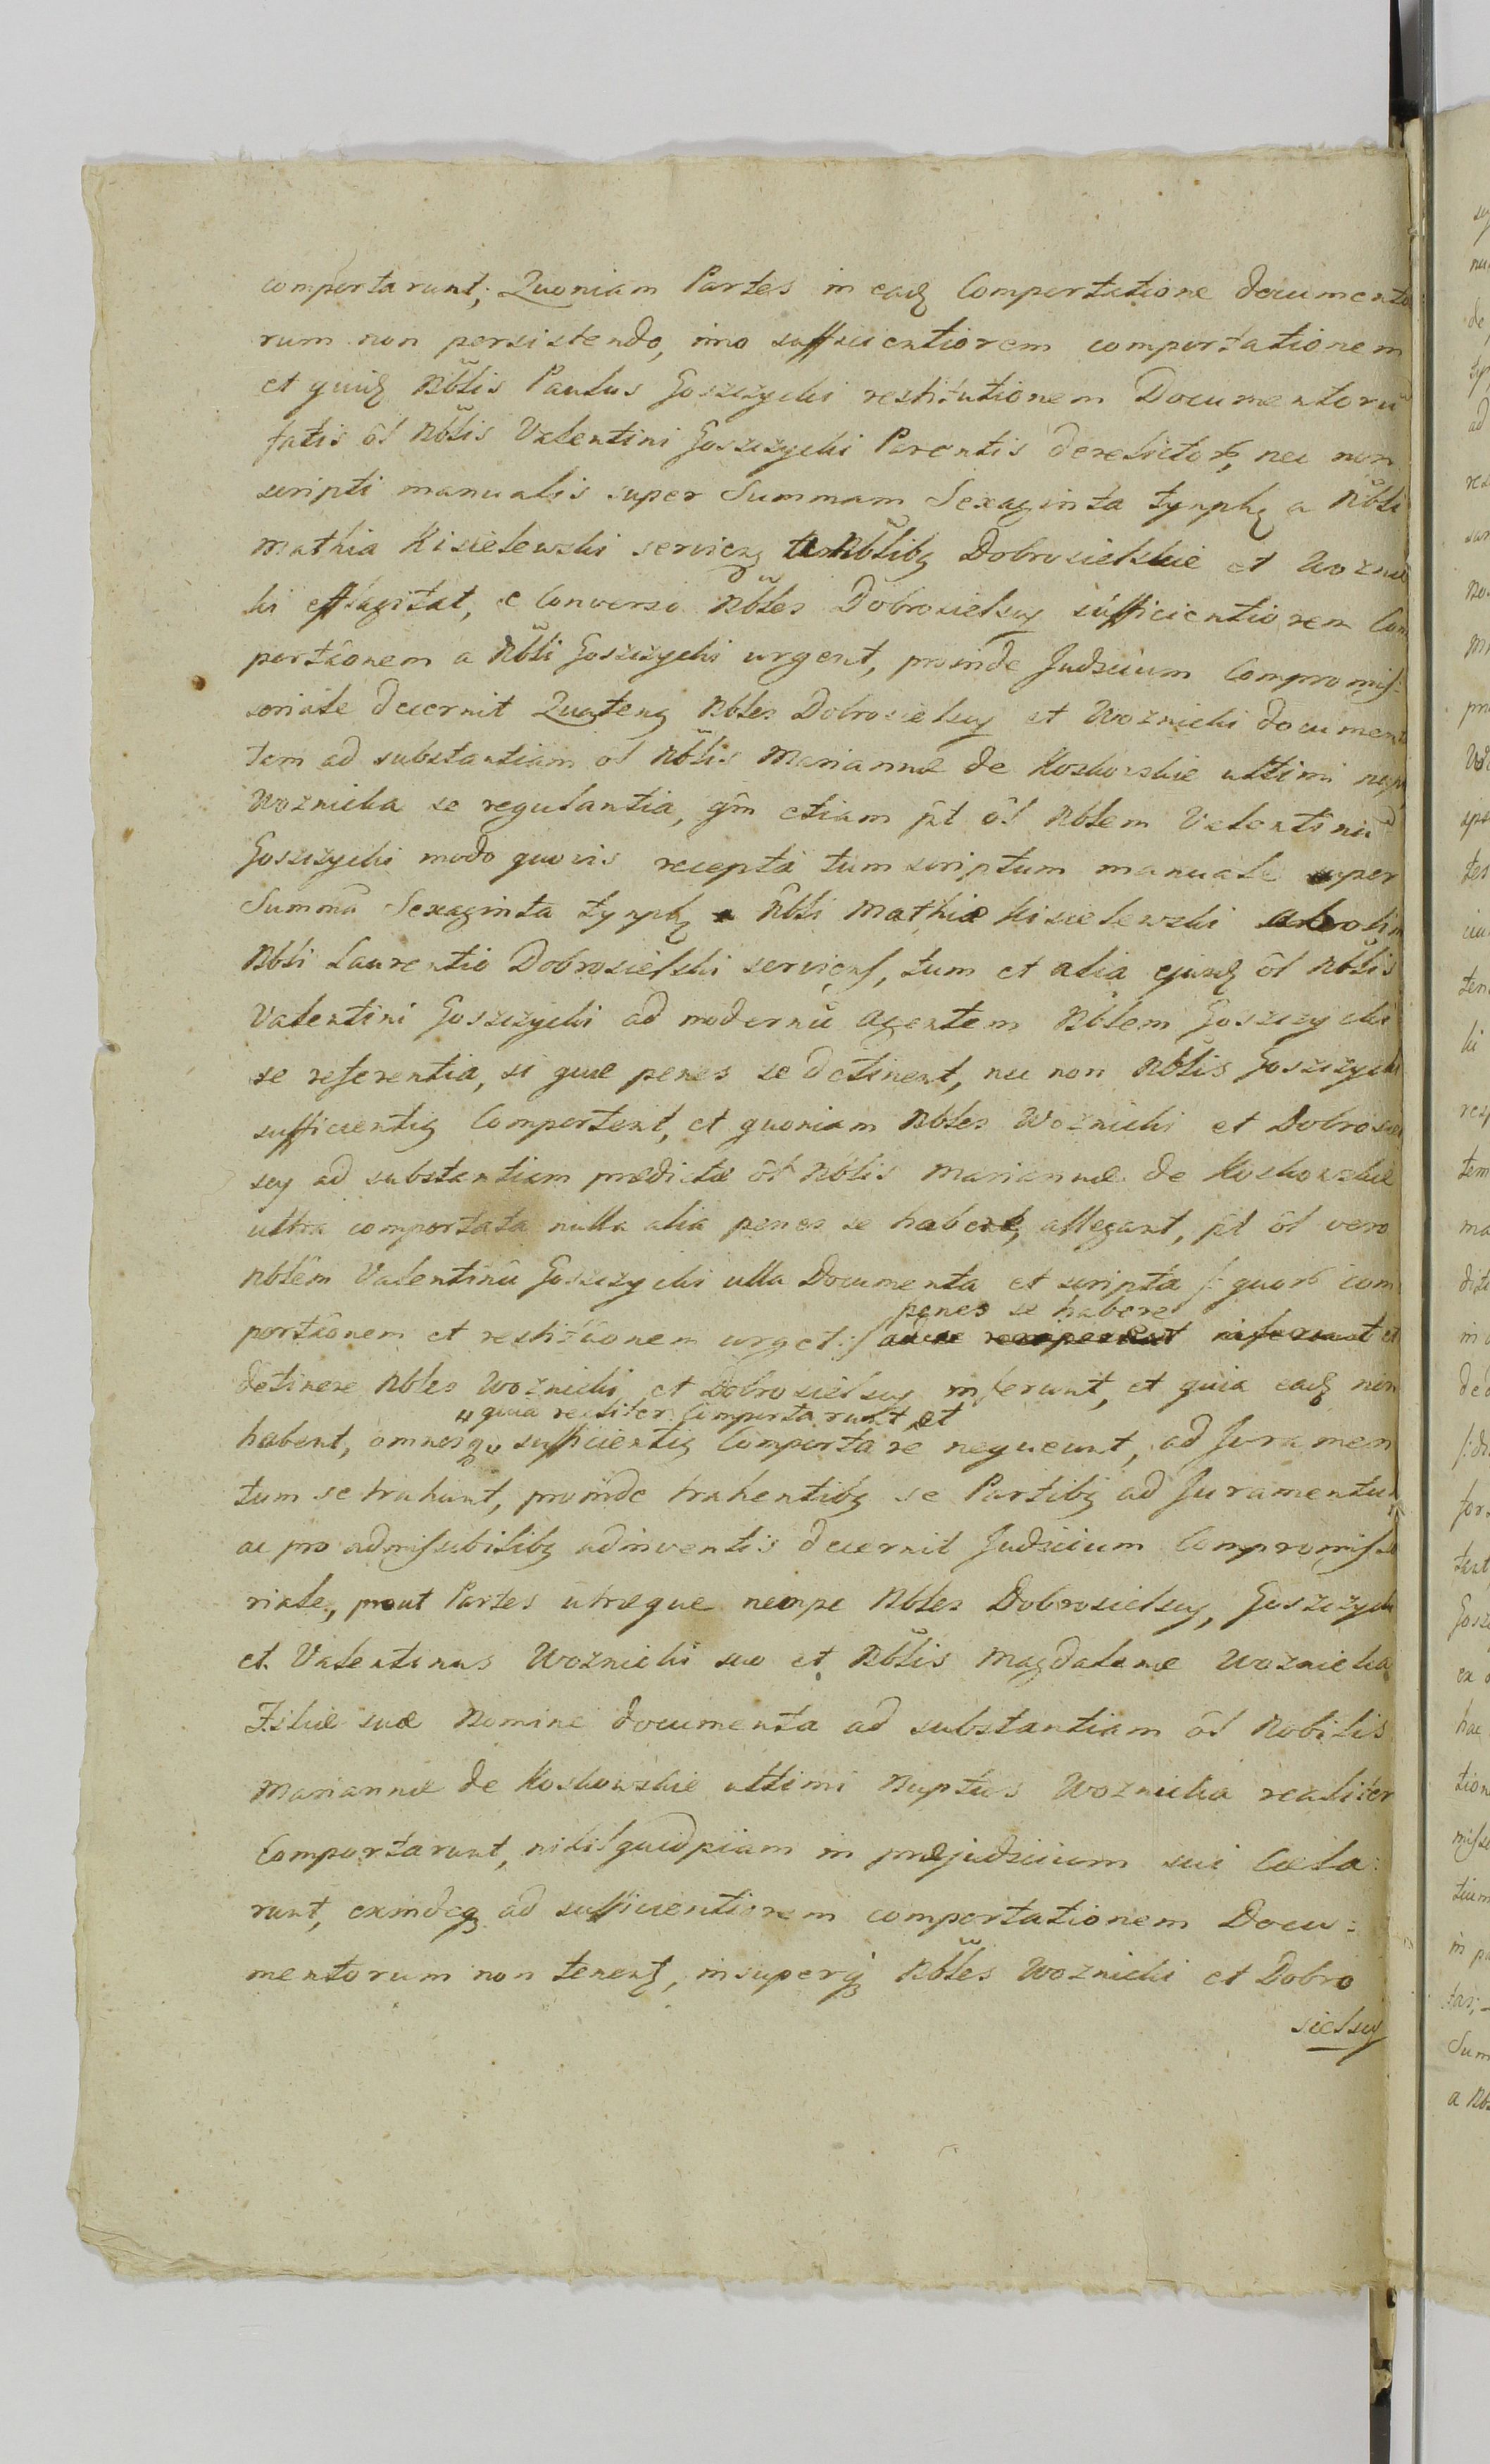 comportarunt; Quoniam Partes in eadȝ Comportatione documento
rum non persistendo, imo sufficientiorem comportationem
et quidȝ Nb̃lis Paulus Goszczycki restitutionem Documentorũ
fatis ôl Nb̃lis Valentini Goszczycki Parentis derelictoꝝ, nec non
scripti manualis super Summam Sexaginta tynphȝ a Nb̃li
Mathia Kisielewski serviens Nb̃libȝ Dobrosielskie et Woznic
ki efflagitat, e converso Nb̃les Dobrosielscy sufficientiorem Com
portãonem a Nb̃li Goszczycki urgent, proinde Judicium Compromis:
soriale decernit Quatenȝ Nbles Dobrosielscy et Woznicki documen
tem ad substantiam ôl Nb̃lis Mariannæ de Koskowskie ultimi nup
Woznicka se regulantia, qm̃ etiam pt̂ ôl Nblem Valentinũ
Goszczycki modo quovis recepta tum scriptum manuale super
Summã Sexaginta tynphȝ a Nb̃li Mathia Kisielewski olim
Nbli Laurentio Dobrosielski serviens, tum et alia ejusdȝ ôl Nb̃lis
Valentini Goszczycki ad modernũ Agentem Nblem Goszczycki
se referentia, si quæ penes se detinent, nec non Nb̃lis Goszczycki
sufficientiȝ Comportent, et quoniam Nbles Woznicki et Dobrosiel
scy ad substantiam prædictæ ôl Nb̃lis Mariannæ de Koskowskie
ultra comportata nulla alia penes se habere, allegant, pt̂ ôl vero
Nblẽm Valentinũ Goszczycki ulla Documenta et scripta /: quorũ com
penes se habere
portãonem et restitũonem urget :/ et
detinere Nbles Woznicki et Dobrosielscy inferunt, et quia eadȝ non
quia realiter Comportarunt et
habent, omnesqȝ sufficientiȝ Comportare nequeunt, ad Juramen
tum se trahunt, proinde trahentibȝ se Partibȝ ad Juramentu
ac pro admissibilibȝ adinventis decernit Judicium Compromisso
riale, prout Partes utræque nempe Nbles Dobrosielscy, Goszczycki
et Valentinus Woznicki suo et Nb̃lis Magdalenæ Woznicka
Filiæ suæ Nomine documenta ad substantiam ôl Nobilis
Mariannæ de Koskowskie ultimi Nuptus Woznicka realiter
Comportarunt, nihil quidpiam in præjudicium sui Cæla:
runt, exindeqȝ ad sufficientiorem comportationem Docu:
mentorum non tenentȝ, insuperqȝ Nb̃les Woznicki et Dobro
sielscy